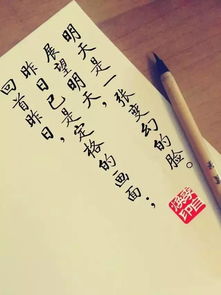 回首昨日，
昨日已是定格的画面；
展望明天，
明天是一张变幻的脸。